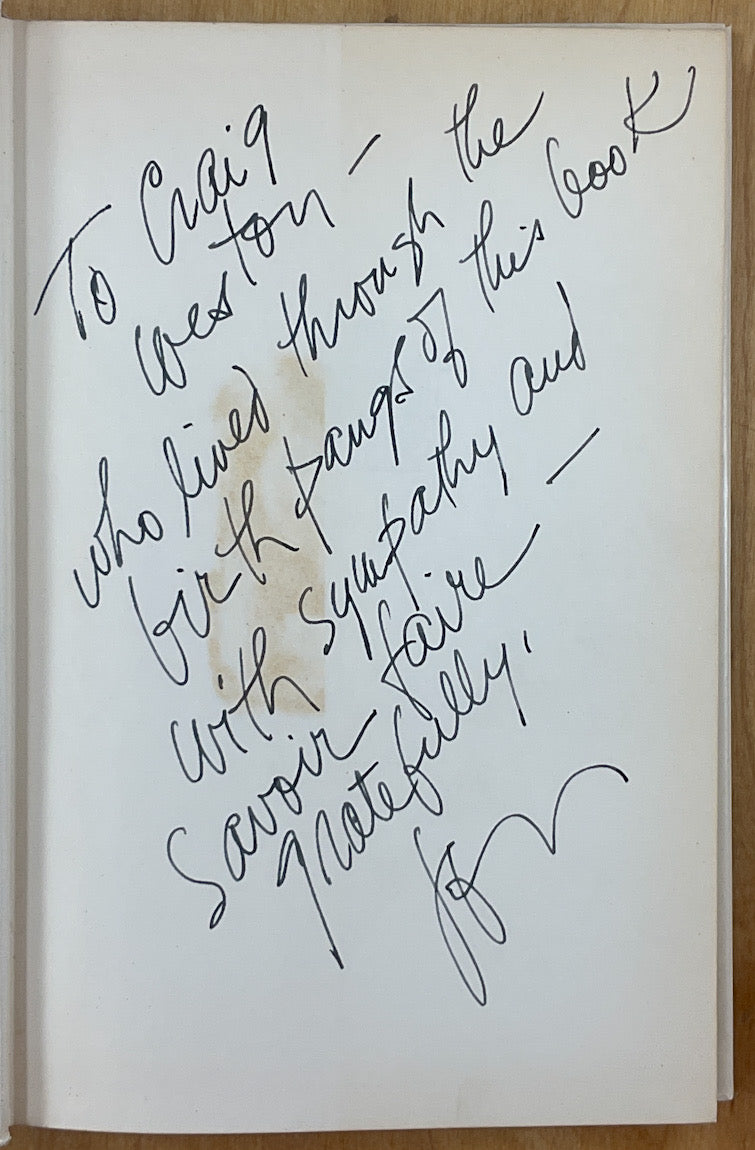 To Craig
Weston –
who lived through the
birth pangs of this book
with sympathy and
savoir faire –
gratefully,